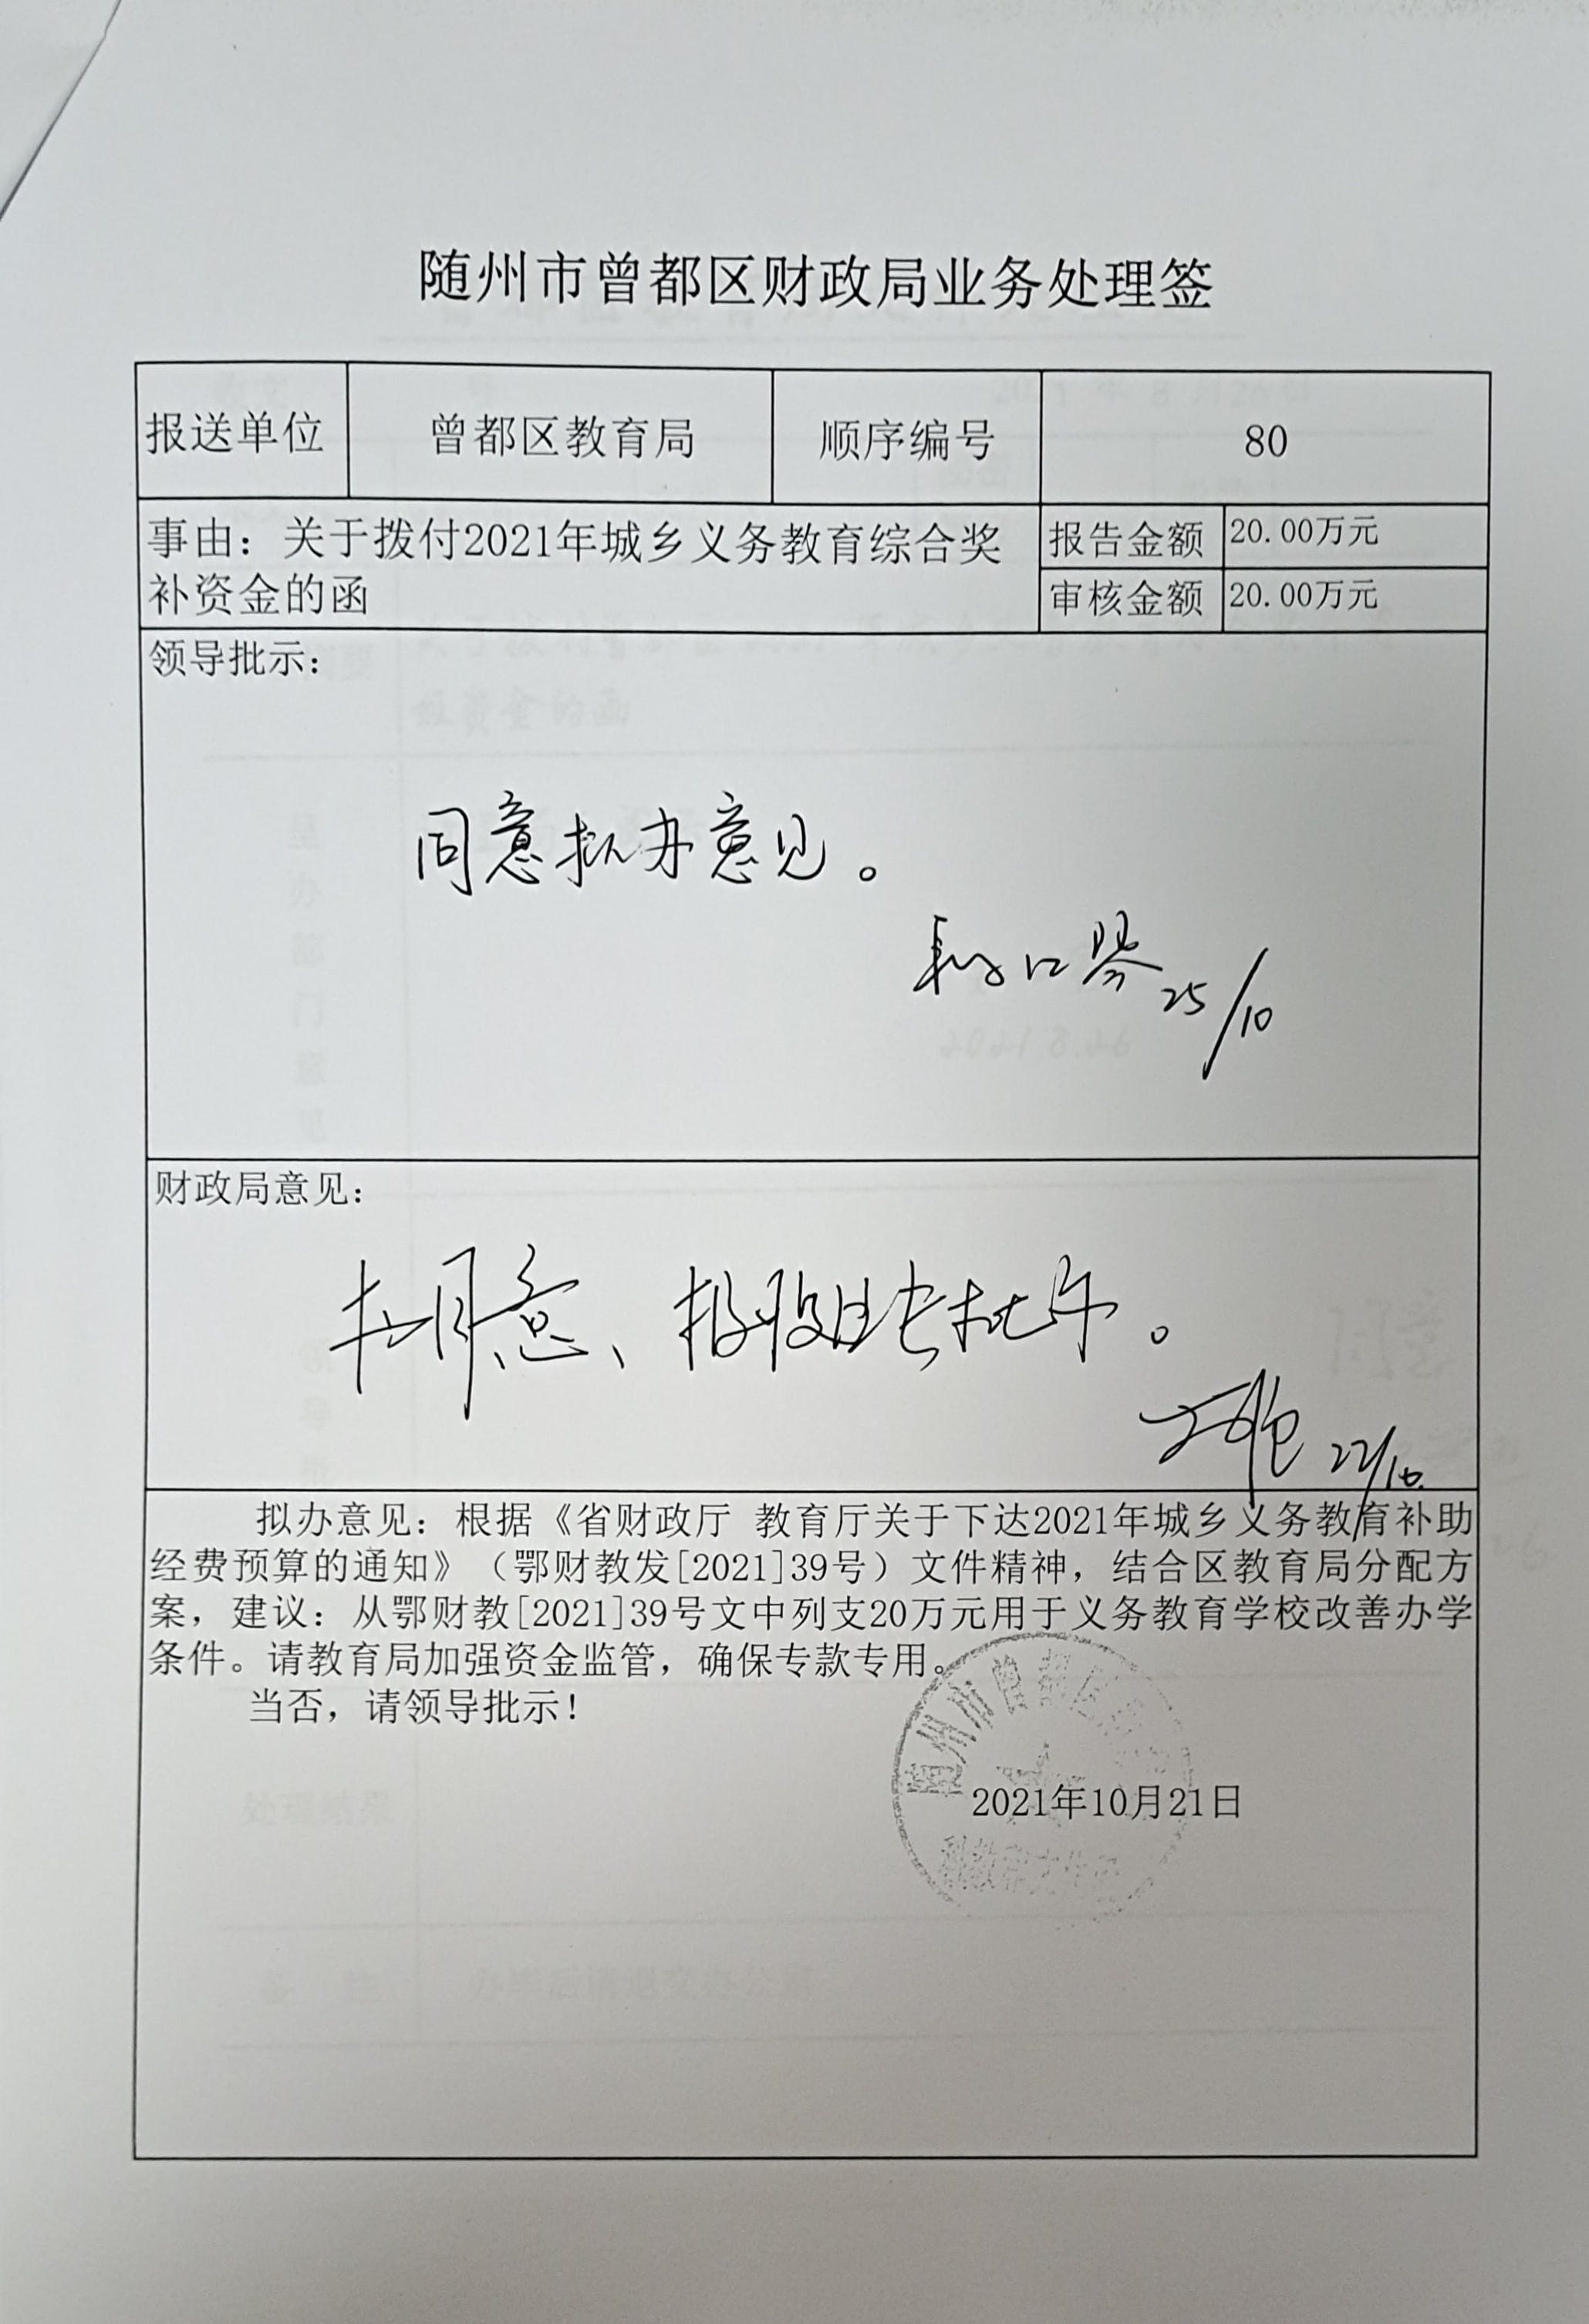 随州市曾都区财政局业务处理签
报送单位 曾都区教育局 顺序编号 80
事由：关于拨付2021年城乡义务教育综合奖
补资金的函
报告金额 20.00万元
审核金额 20.00万元
领导批示：
同意拟办意见。
25/10
财政局意见：
拟同意、报
22/10.
拟办意见：根据《省财政厅 教育厅关于下达2021年城乡义务教育补助
经费预算的通知》（鄂财教发[2021]39号）文件精神，结合区教育局分配方
案，建议：从鄂财教[2021]39号文中列支20万元用于义务教育学校改善办学
条件。请教育局加强资金监管，确保专款专用。
当否，请领导批示！
随州市曾都区
2021年10月21日